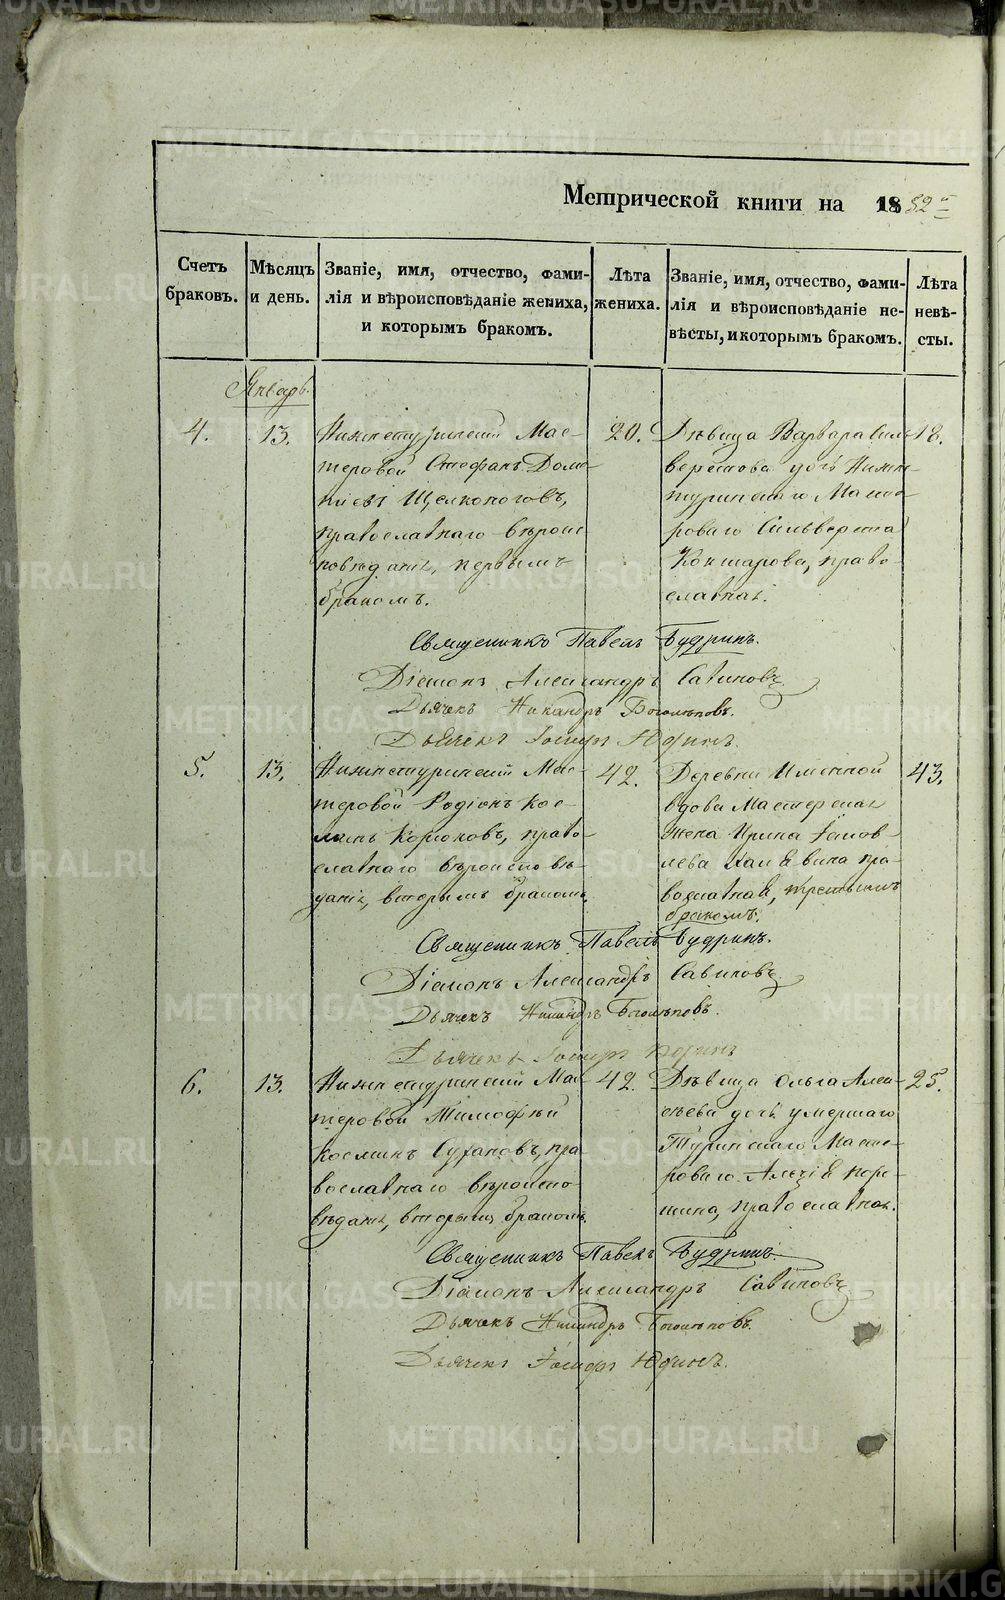 Метрической книги на 1852й
Счетъ браковъ.
Мѣсяцъ и день.
Званіе, имя, отчество, фами-
лія и вѣроисповѣданіе жениха,
и которымъ бракомъ.
Лѣта жениха.
Званіе, имя, отчество, фами-
лія и вѣроисповѣданіе не-
вѣсты, и которымъ бракомъ.
Лѣта невѣ-
сты.
Январь.
4.
13.
Нижнетуринскій Мас-
теровой Стефанъ Доме-
тіевъ Щелконоговъ,
православнаго вѣроис
повѣданія, первымъ
бракомъ.
20.
Дѣвица Варвара Силь
верстова дочь Нижне-
туринскаго Масте-
роваго Сильверста
Кокшарова, право-
славная.
18.
Священникъ Павелъ Будринъ.
Діаконъ Александръ Савиновъ
Дьячекъ Никандръ Боголѣповъ.
Дьячекъ Іосифъ Юдинъ
5.
13.
Нижнетуринскій Мас-
теровой Родіонъ Кос-
минъ Корюковъ, право-
славнаго вѣроисповѣ-
данія, вторымъ бракомъ
42.
Деревни Именной
вдова Мастерская
жена Ирина Іаков-
лева пра-
вославная, третьимъ
бракомъ.
43.
Священникъ Павелъ Будринъ.
Діаконъ Александръ Савиновъ
Дьячекъ Никандръ Боголѣповъ.
Дьячекъ Іосифъ Юдинъ
6.
13.
Нижнетуринскій Мас
теровой Тимофѣй
Косминъ Сухановъ, пра
вославнаго вѣроиспо-
вѣданія, вторымъ бракомъ.
42.
Дѣвица Ольга Алек-
сѣева дочь умершаго
Туринскаго Масте-
роваго Алексія
православная.
25.
Священникъ Павелъ Будринъ.
Діаконъ Александръ Савиновъ
Дьячекъ Никандръ Боголѣповъ.
Дьячекъ Іосифъ Юдинъ.
METRIKI.GASO-URAL.RU